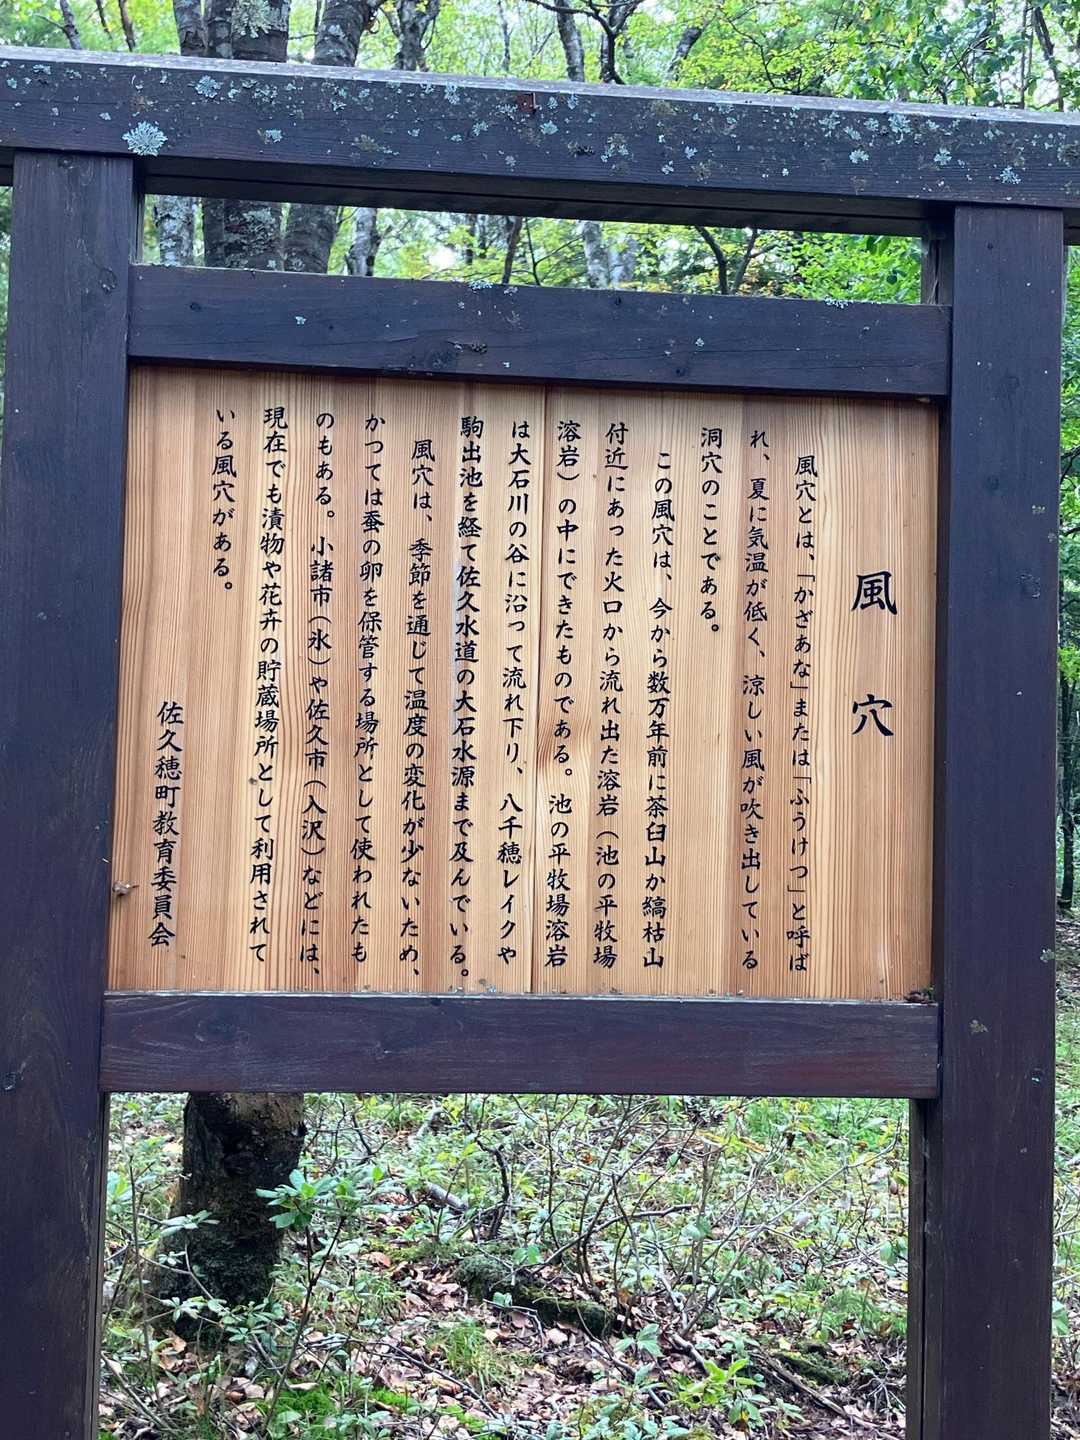 風穴
風穴とは、「かざあな」または「ふうけつ」と呼ば
れ、夏に気温が低く、涼しい風が吹き出している
洞穴のことである。
この風穴は、今から数万年前に茶臼山か縞枯山
付近にあった火口から流れ出た溶岩（池の平牧場
溶岩）の中にできたものである。池の平牧場溶岩
は大石川の谷に沿って流れ下り、八千穂レイクや
駒出池を経て佐久水道の大石水源まで及んでいる。
風穴は、季節を通じて温度の変化が少ないため、
かつては蚕の卵を保管する場所として使われたも
のもある。小諸市（氷）や佐久市（入沢）などには、
現在でも漬物や花卉の貯蔵場所として利用されて
いる風穴がある。
佐久穂町教育委員会